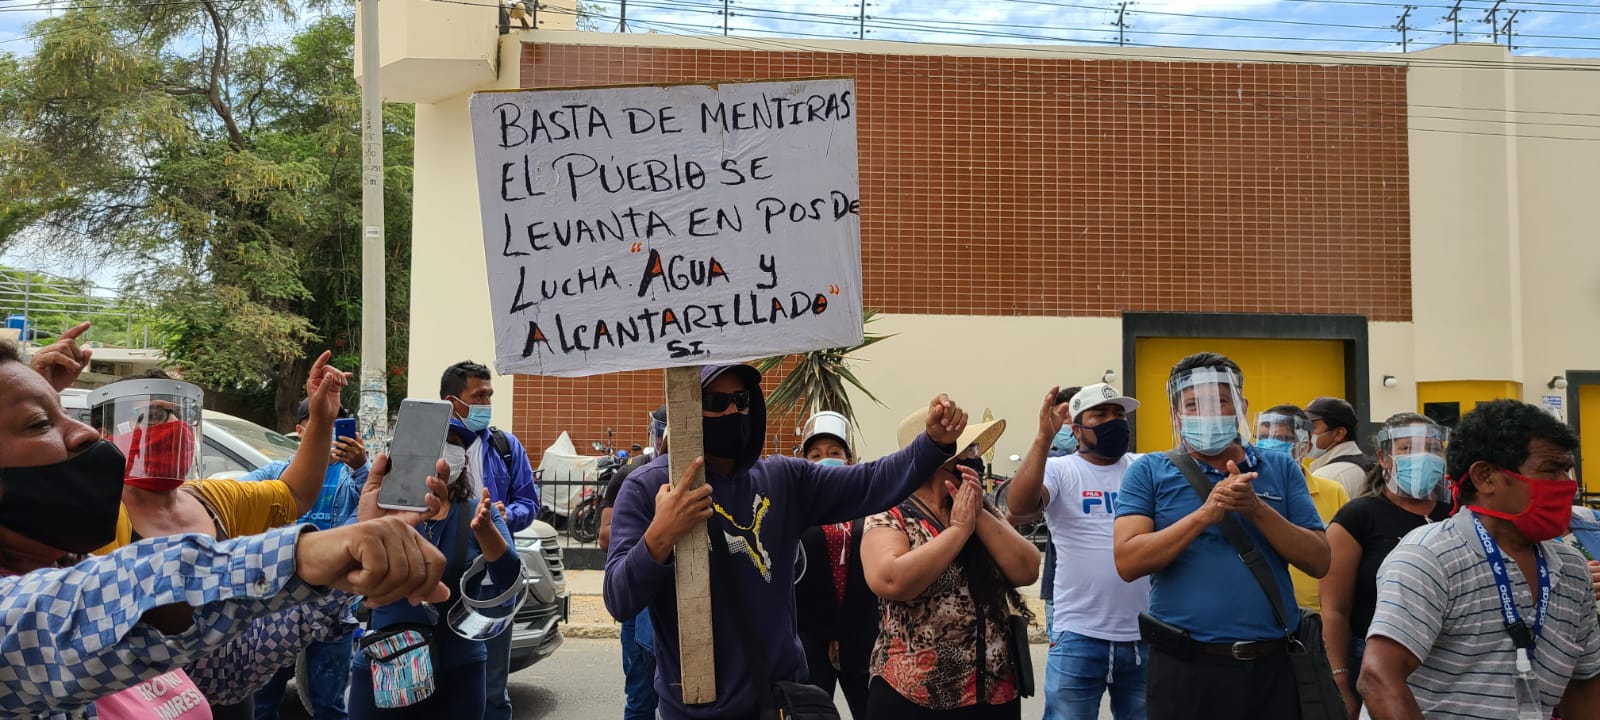 BASTA DE MENTIRAS
EL PUEBLO SE
LEVANTA EN POS DE
LUCHA "AGUA Y
ALCANTARILLADO"
SI.
FILA
FILA
adidas
adidas
adidas